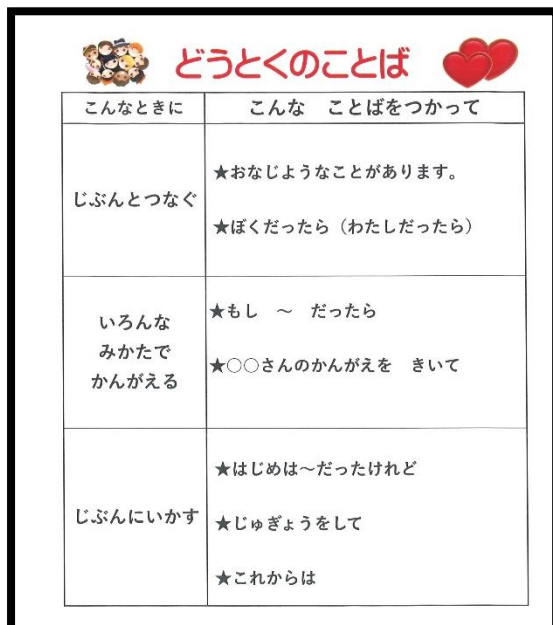 どうとくのことば
こんなときに
こんな　ことばをつかって
じぶんとつなぐ
★おなじようなことがあります。
★ぼくだったら（わたしだったら）
いろんな
みかたで
かんがえる
★もし　～　だったら
★○○さんのかんがえを　きいて
じぶんにいかす
★はじめは～だったけれど
★じゅぎょうをして
★これからは